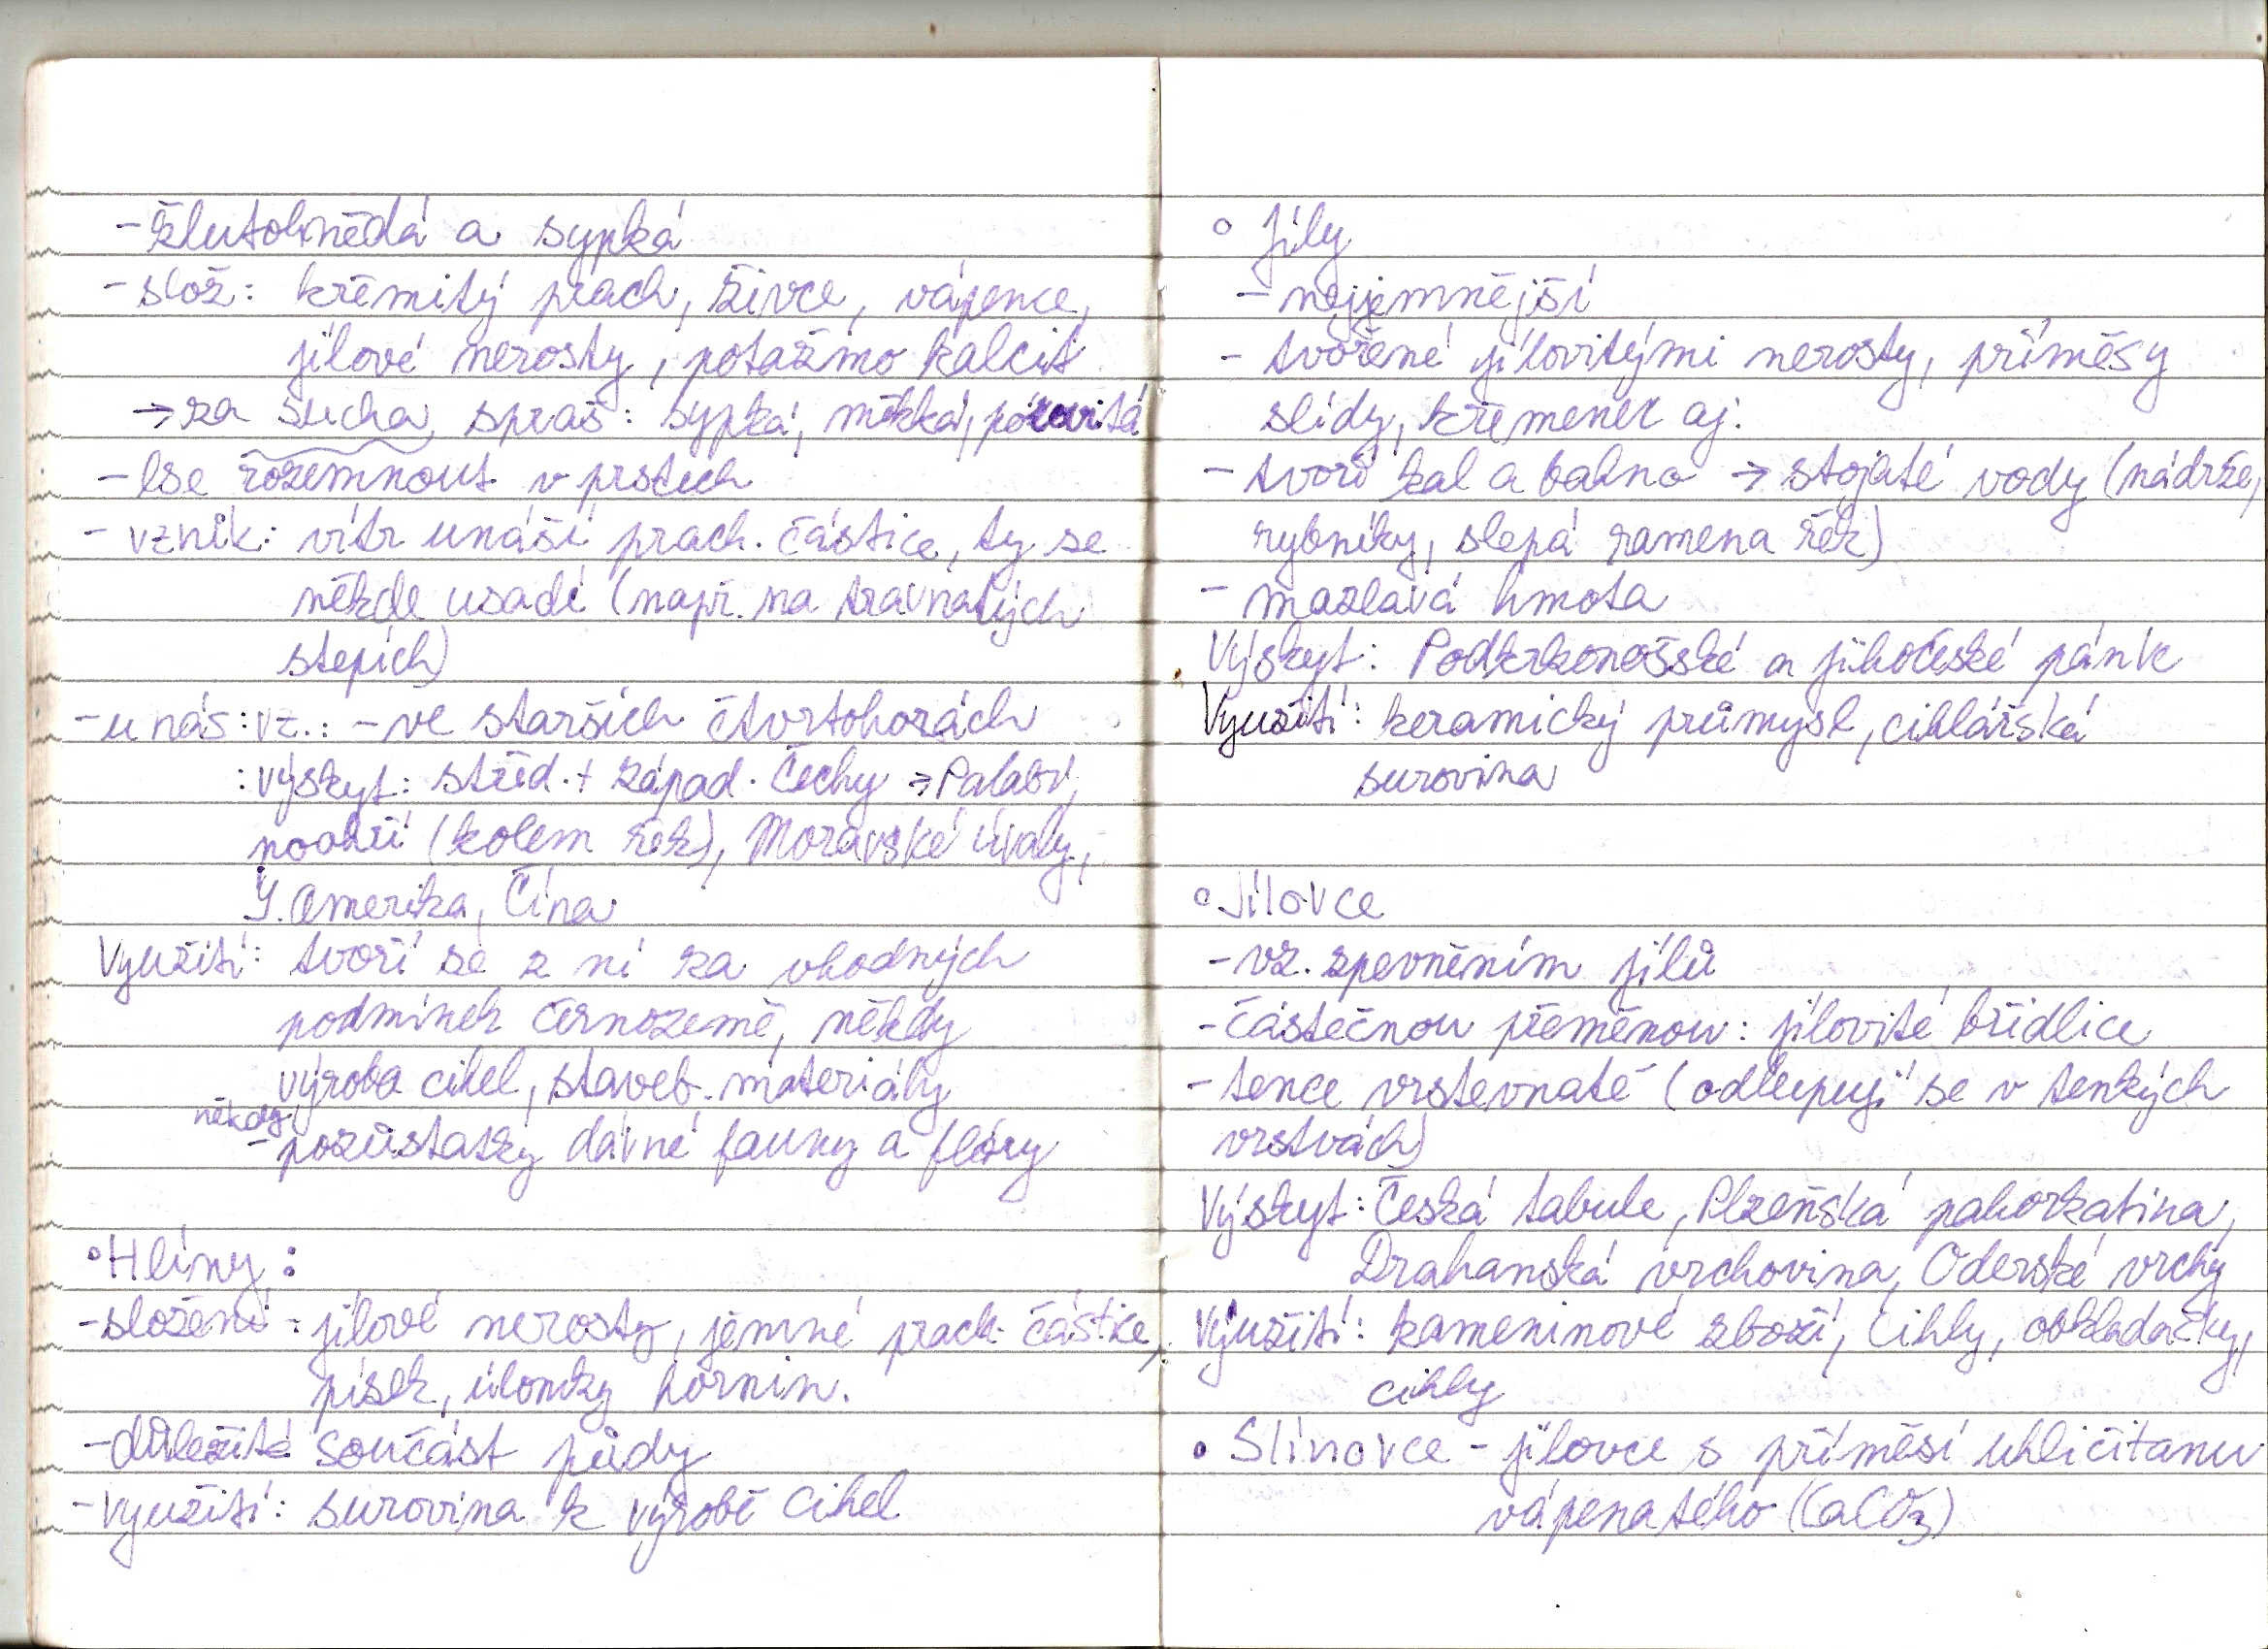 - žlutohnědá a sypká
- slož: křemitý prach, živce, vápence,
jílové nerosty, potažmo kalcit
→ za sucha, spraš: sypká, měkká, pórovitá
- lse rozemnout v prstech
- vznik: vítr unáší prach. částice, ty se
někde usadí (např. na travnatých
stepích)
- u nás: vz.: - ve starších čtvrtohorách
: výskyt: střed. + západ. Čechy → Polabí,
poohří (kolem řek), Moravské úvaly,
J. Amerika, Čína
Využití: tvoří se z ní za vhodných
podmínek černozemě, někdy
výroba cihel, staveb. materiály
někdy
- pozůstatky dávné fauny a flóry
• Hlíny:
- složení - jílové nerosty, jemné prach. částice,
písek, úlomky hornin.
- důležité součást půdy
- využití: surovina k výrobě cihel
○ Jíly
- nejjemnější
- tvořené jílovitými nerosty, příměsy
slídy, křemenek aj.
- tvoří kal a bahno → stojaté vody (nádrže,
rybníky, slepá ramena řek)
- mazlavá hmota
Výskyt: Podkrkonošské a jihočeské pánve
Využití: keramický průmysl, cihlářská
surovina
○ Jílovce
- vz. zpevněním jílů
- částečnou přeměnou: jílovité břidlice
- tence vrstevnaté (odlupují se v tenkých
vrstvách)
Výskyt: Česká tabule, Plzeňská pahorkatina,
Drahanská vrchovina, Oderské vrchy
Využití: kameninové zboží, cihly, obkladačky,
cihly
• Slínovce - jílovce s příměsí uhličitanu
vápenatého (CaCO3)